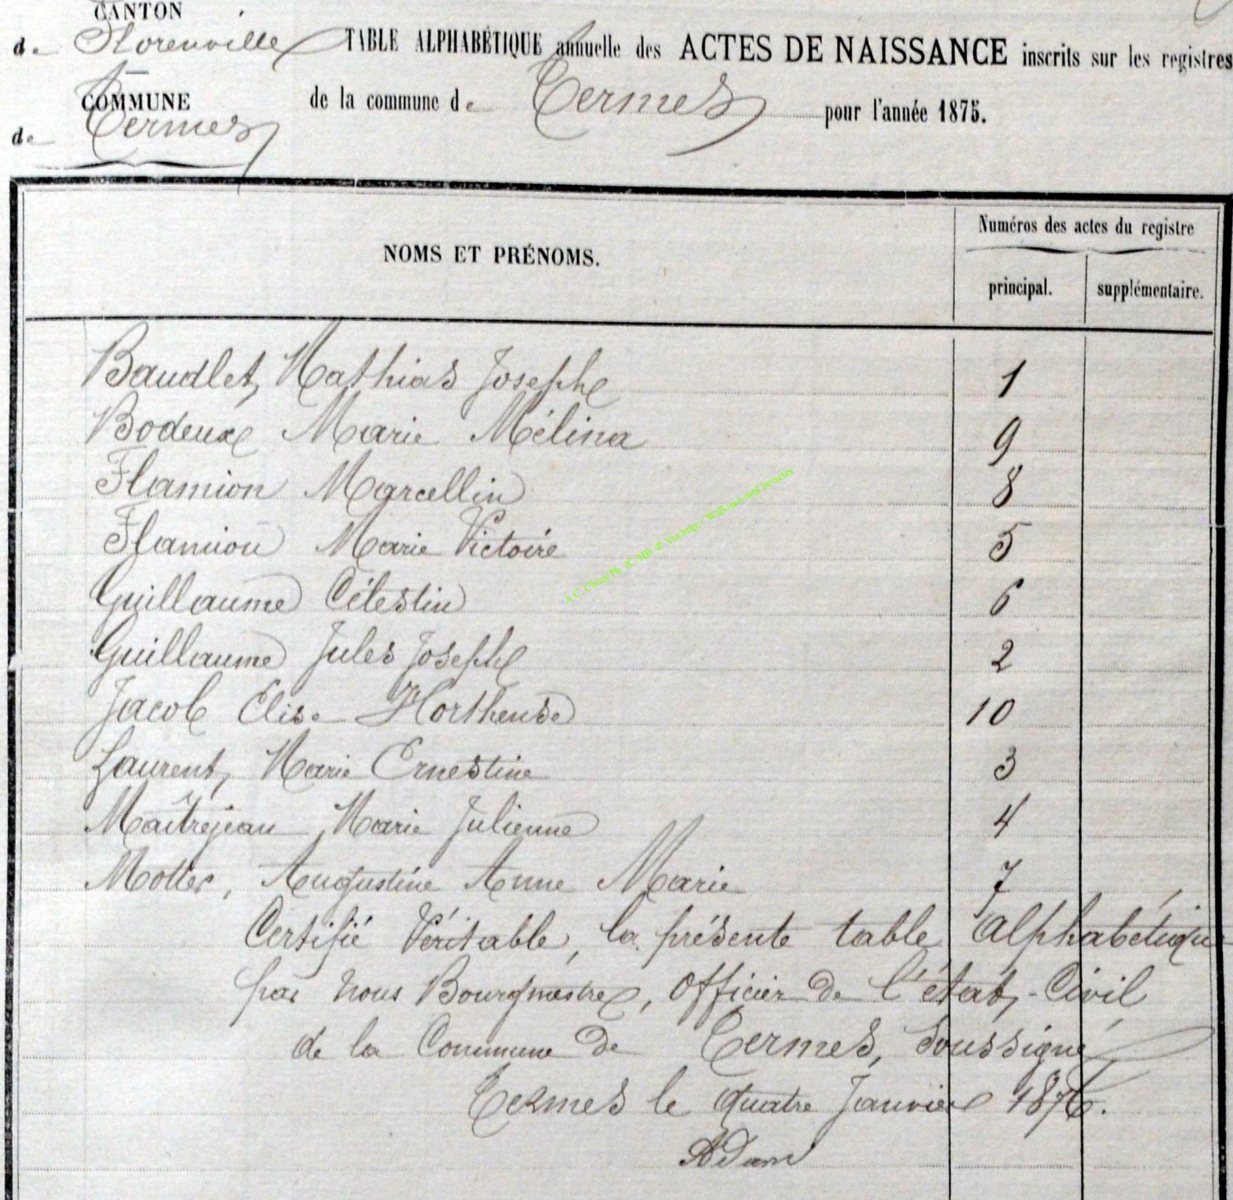 CANTON
de Florenville
TABLE ALPHABÉTIQUE annuelle des ACTES DE NAISSANCE inscrits sur les registres
COMMUNE
de Termes
de la commune de Termes pour l'année 1875.
NOMS ET PRÉNOMS.
Numéros des actes du registre
principal. supplémentaire.
Baudlet, Mathias Joseph 1
Bodeux Marie Mélina 9
Flamion Marcellin 8
Flamion Marie Victoire 5
Guillaume Célestin 6
Guillaume Jules Joseph 2
Jacob Elise Horthense 10
Laurent, Marie Ernestine 3
Maîtrejean, Marie Julienne 4
Motter, Augustine Anne Marie 7
Certifié Véritable, la présente table Alphabétique
par nous Bourgmestre, Officier de l'état-Civil
de la Commune de Termes, soussigné
Termes le quatre Janvier 1876.
Adam